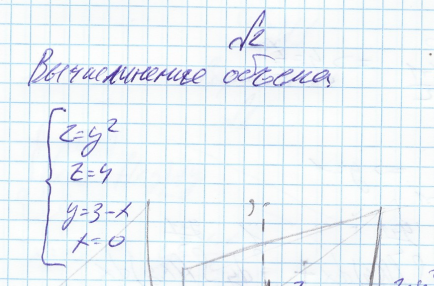 №2
Вычислинение объема
z=y²
z=4
y=3-x
x=0